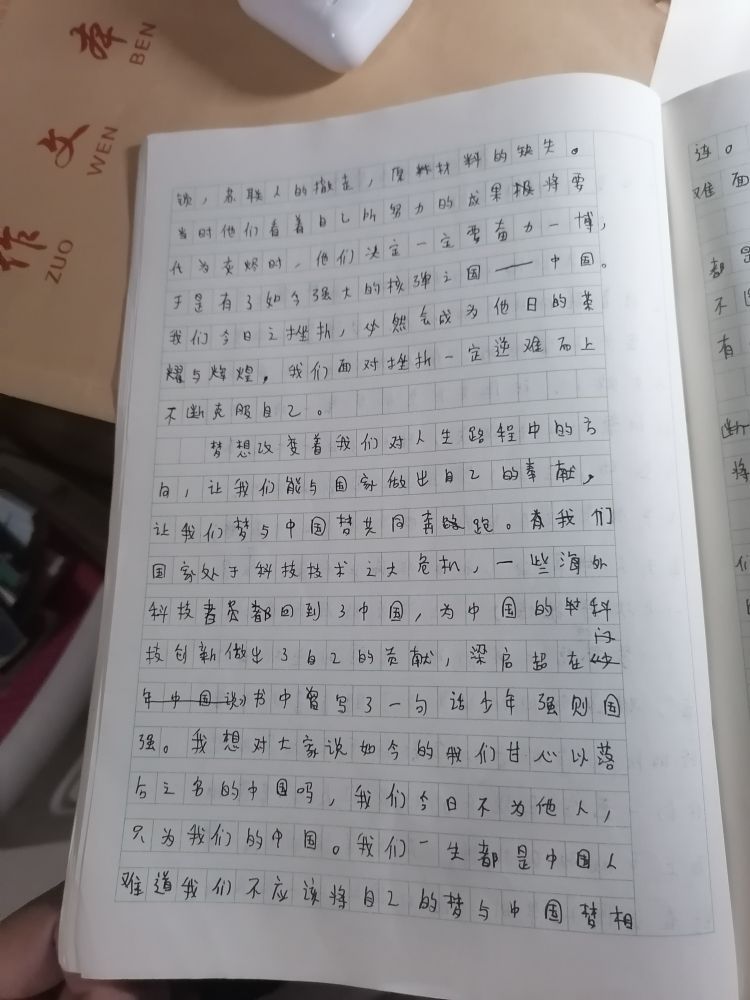 作文本
ZUO WEN BEN
锁，苏联人的撤走，原料材料的缺失。
当时他们看着自己所努力的成果极将要
化为灰烬时，他们决定一定要奋力一博，
于是有了如今强大的核弹之国——中国。
我们今日之挫折，必然会成为他日的荣
耀与辉煌，我们面对挫折一定逆难而上
不断克服自己。
梦想改变着我们对人生路程中的方
向，让我们能与国家做出自己的奉献，
让我们梦与中国梦共同奔路跑。在我们
国家处于科技技术之大危机，一些海外
科技者员都回到了中国，为中国的科
技创新做出了自己的贡献，梁启超在《少
年中国说》书中曾写了一句话少年强则国
强。我想对大家说如今的我们甘心以落
后之名的中国吗，我们今日不为他人，
只为我们的中国。我们一生都是中国人
难道我们不应该将自己的梦与中国梦相
连。
难面
都是
不
有
断
将
们